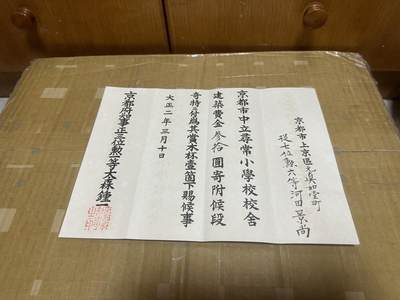 京都市上京區元真如堂町
從七位勲六等河田景尚
京都市中立尋常小學校校舍
建築費金參拾圓寄附候段
奇特ニ付爲其賞木杯壹箇下賜候事
大正二年三月十日
京都府知事正三位勲一等大森鍾一